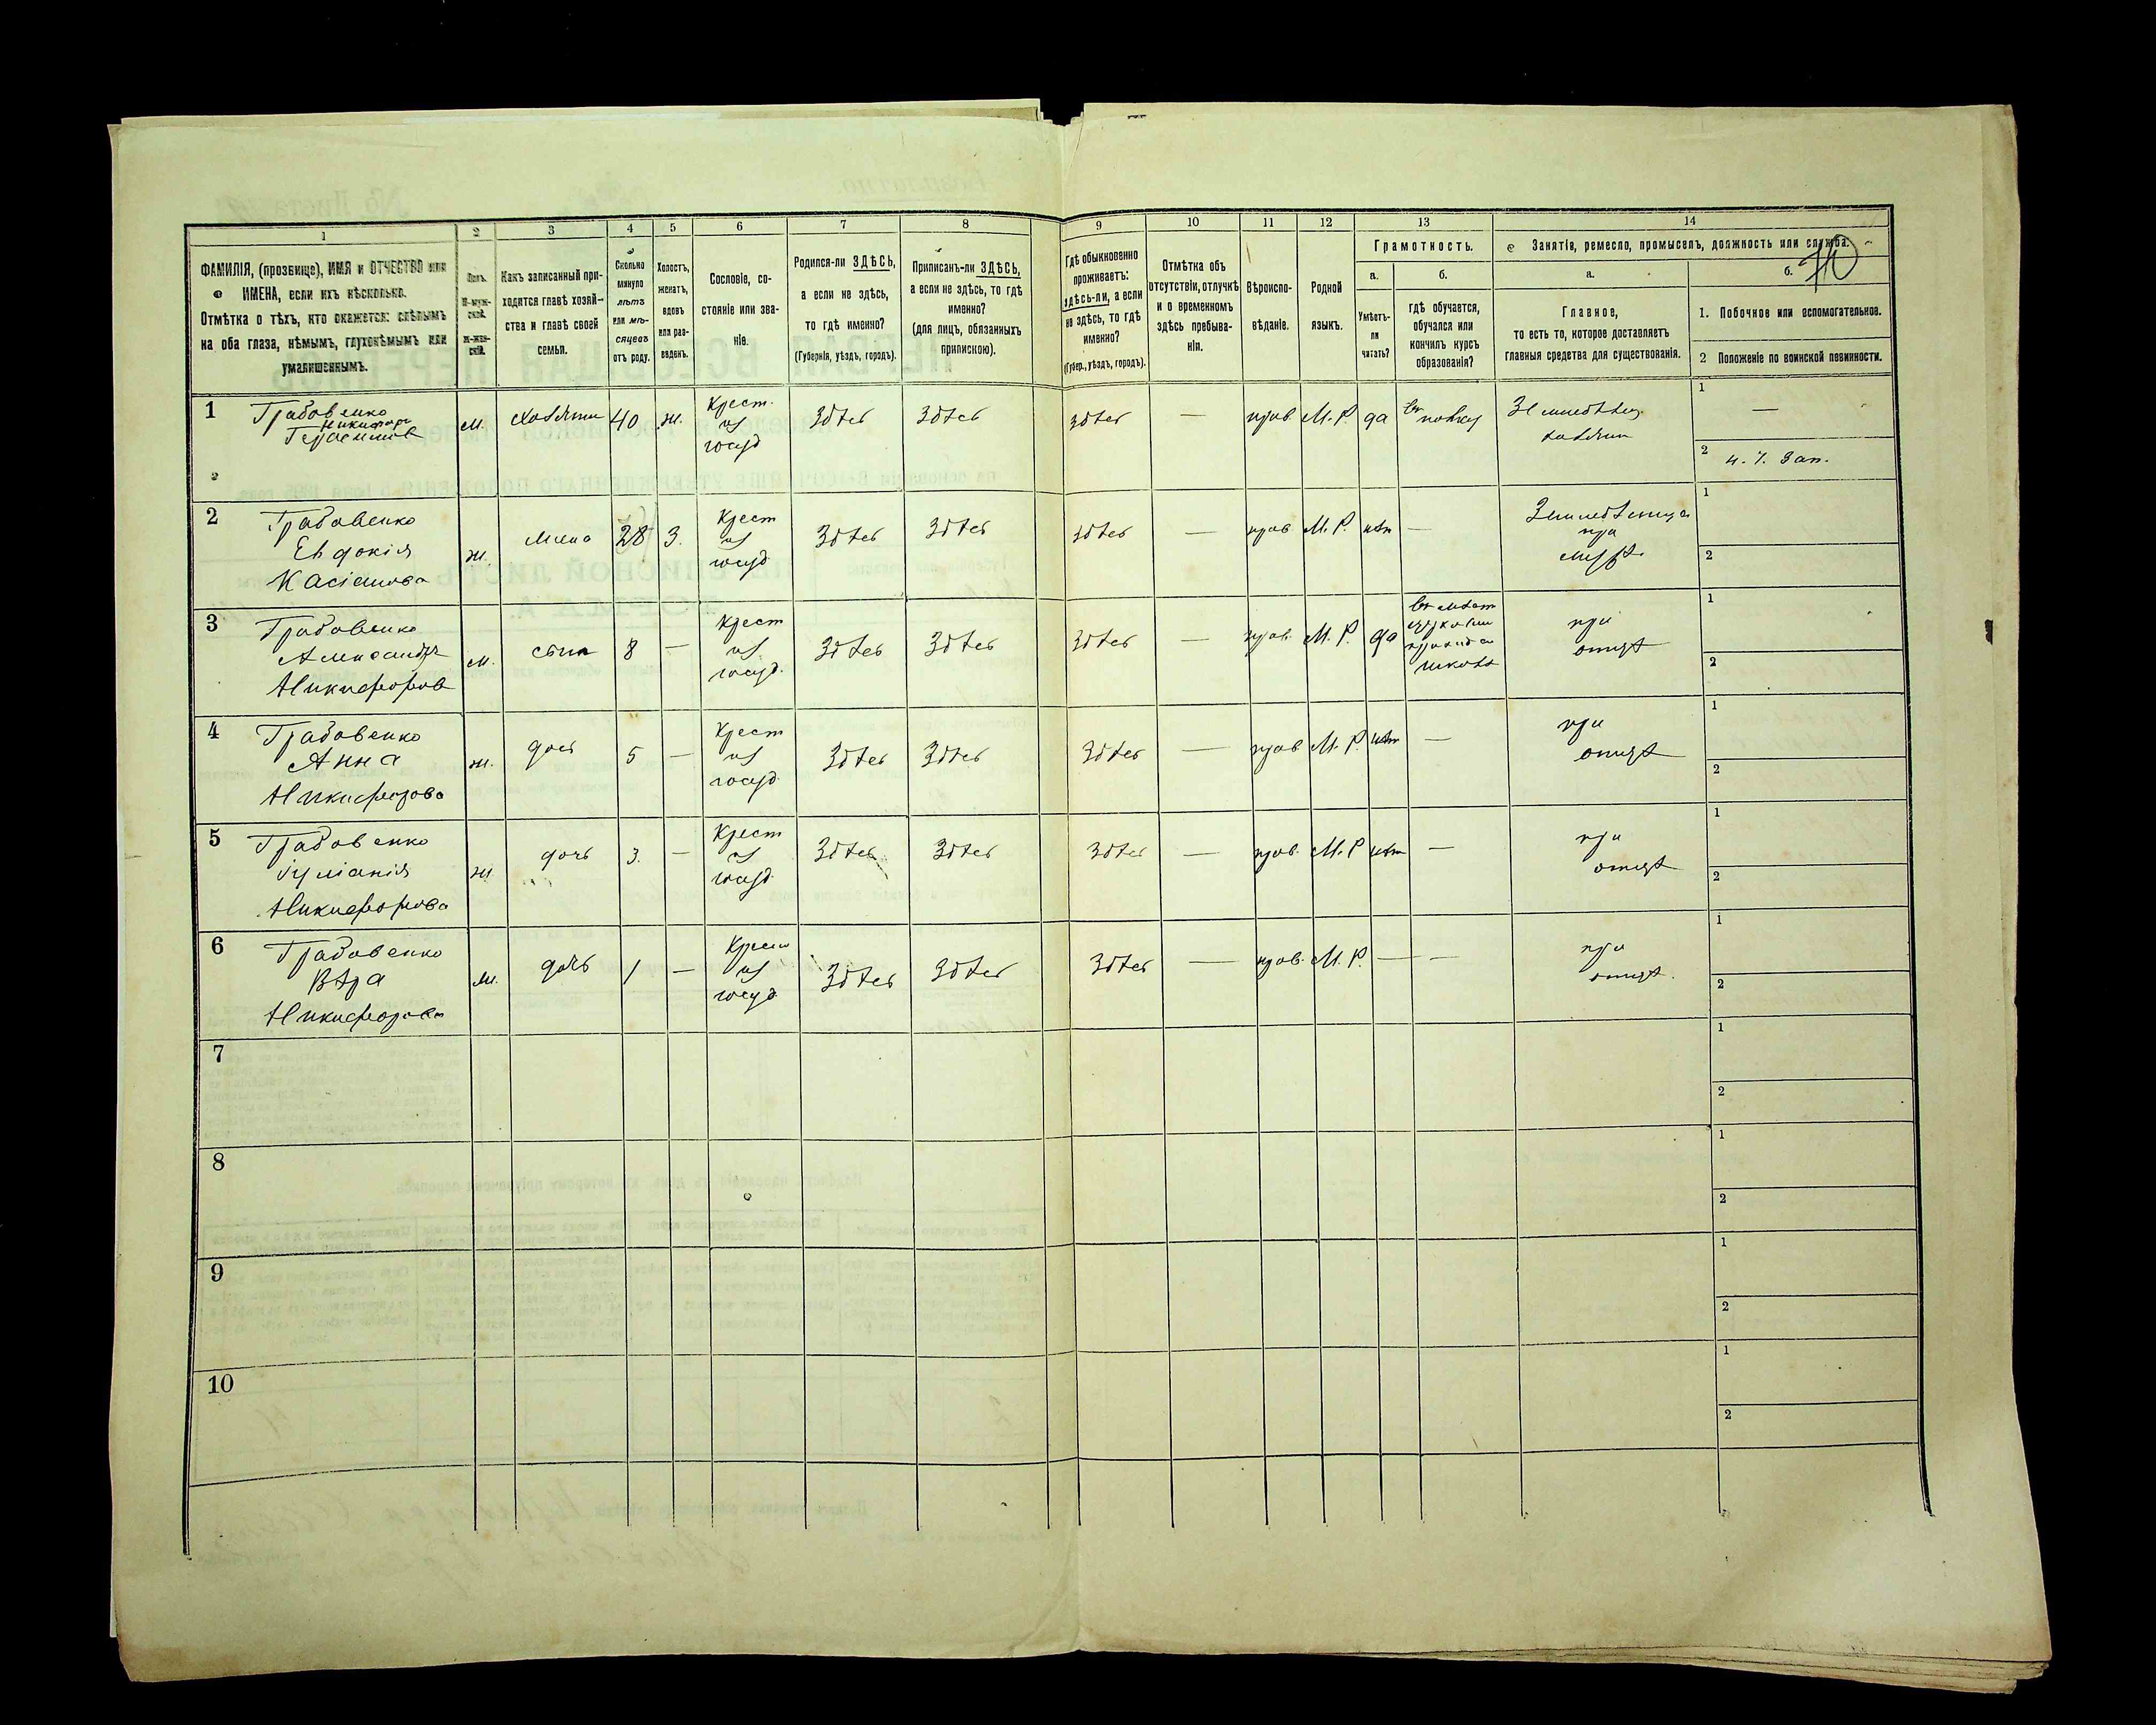 1 2 3 4 5 6 7 8 9 10 11 12 13 14
ФАМИЛІЯ, (прозвище), ИМЯ и ОТЧЕСТВО или
ИМЕНА, если ихъ нѣсколько.
Отмѣтка о тѣхъ, кто окажется: слѣпымъ
на оба глаза, нѣмымъ, глухонѣмымъ или
умалишеннымъ.
Полъ.
М-муж-
ской.
ж-жен-
скій.
Какъ записанный при-
ходится главѣ хозяй-
ства и главѣ своей
семьи.
Сколько
минуло
лѣтъ
или мѣ-
сяцевъ
отъ роду.
Холостъ,
женатъ,
вдовъ
или раз-
веденъ.
Сословіе, со-
стояніе или зва-
ніе.
Родился-ли ЗДѢСЬ,
а если не здѣсь,
то гдѣ именно?
(Губернія, уѣздъ, городъ).
Приписанъ-ли ЗДѢСЬ,
а если не здѣсь, то гдѣ
именно?
(для лицъ, обязанныхъ
припискою).
Гдѣ обыкновенно
проживаетъ:
здѣсь-ли, а если
не здѣсь, то гдѣ
именно?
(Губер., уѣздъ, городъ).
Отмѣтка объ
отсутствіи, отлучкѣ
и о временномъ
здѣсь пребыва-
ніи.
Вѣроиспо-
вѣданіе.
Родной
языкъ.
Грамотность.
а.
Умѣетъ-
ли
читать?
б.
гдѣ обучается,
обучался или
кончилъ курсъ
образованія?
Занятіе, ремесло, промыселъ, должность или служба.
а.
Главное,
то есть то, которое доставляетъ
главныя средства для существованія.
б.
1. Побочное или вспомогательное.
2 Положеніе по воинской повинности.
1
Грабовенко
Никифоръ
Герасимов
м.
хозяин
40
ж.
Крест.
из
госуд
Здѣсь
Здѣсь
Здѣсь
—
прав.
М. Р.
да
Земледѣлец
хозяин
1
—
2
2
Грабовенко
Евдокія
Касіанова
ж.
жена
28
З.
Крест
из
госуд
Здѣсь
Здѣсь
Здѣсь
—
прав
М. Р.
нѣт
—
при
мужѣ
1
2
3
Грабовенко
Александръ
Никифоров
м.
сынъ
8
—
Крест
из
госуд.
Здѣсь
Здѣсь
Здѣсь
—
прав.
М. Р.
да
школѣ
при
отцѣ
1
2
4
Грабовенко
Анна
Никифорова
ж.
дочь
5
—
Крест
из
госуд
Здѣсь
Здѣсь
Здѣсь
—
прав
М. Р.
нѣт
—
при
отцѣ
1
2
5
Грабовенко
Іуліанія
Никифорова
ж
дочь
3.
—
Крест
из
госуд
Здѣсь
Здѣсь
Здѣсь
—
прав.
М. Р
нѣт
—
при
отцѣ
1
2
6
Грабовенко
Вѣра
Никифорова
м.
дочь
1
—
Крест
из
госуд
Здѣсь
Здѣсь
Здѣсь
—
прав.
М. Р.
—
—
при
отцѣ.
1
2
7
1
2
8
1
2
9
1
2
10
1
2